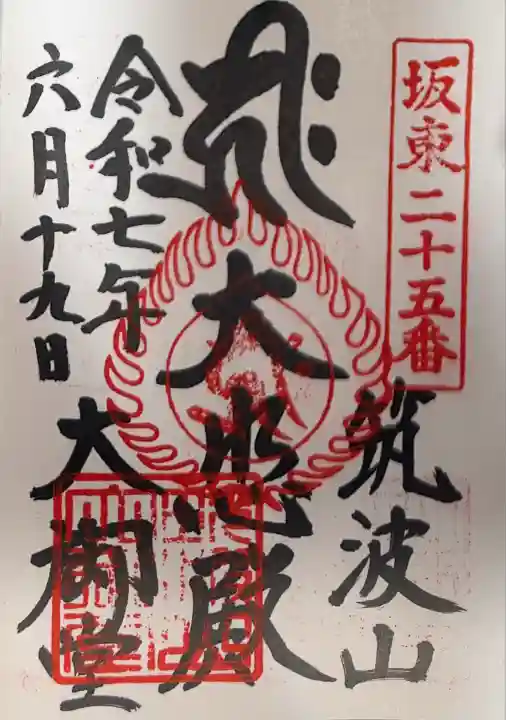 坂東二十五番
筑波山
大悲殿
令和七年
六月十九日
大御堂